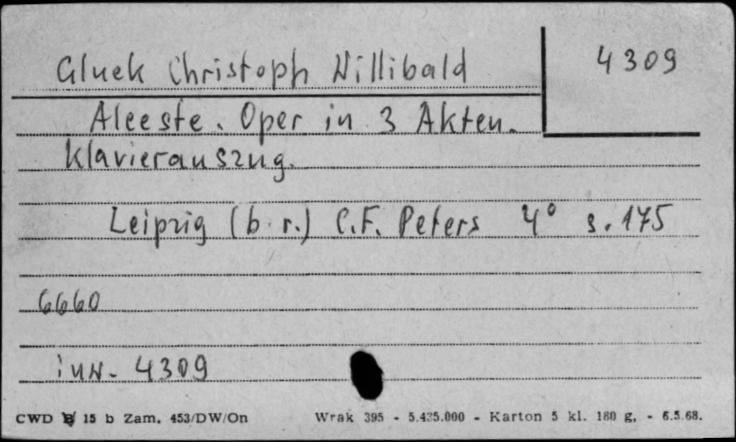 Gluck Christoph Willibald
4309
Alceste. Oper in 3 Akten.
Klavierauszug.
Leipzig (b. r.) C.F. Peters 4° s. 175
6660
inw. 4309
CWD 15 b Zam. 453/DW/On Wrak 395 - 5.435.000 - Karton 5 kl. 180 g. - 6.5.68.